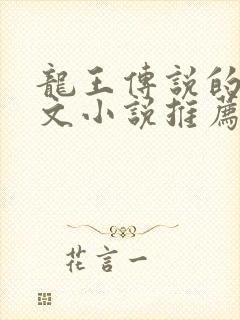 龍王傳説的
文小説推薦
花言一